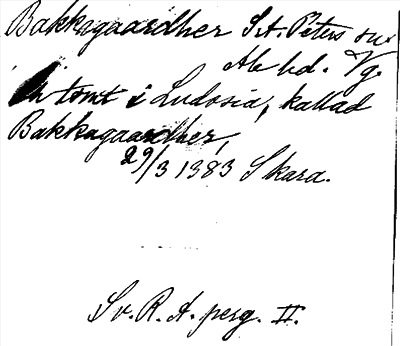 Bakkagaardher S:t. Peters sn
Ale hd. Vg.
En tomt i Ludosia, kallad
Bakkagaardher,
29/3 1383 Skara.
Sv. R. A. perg. II.